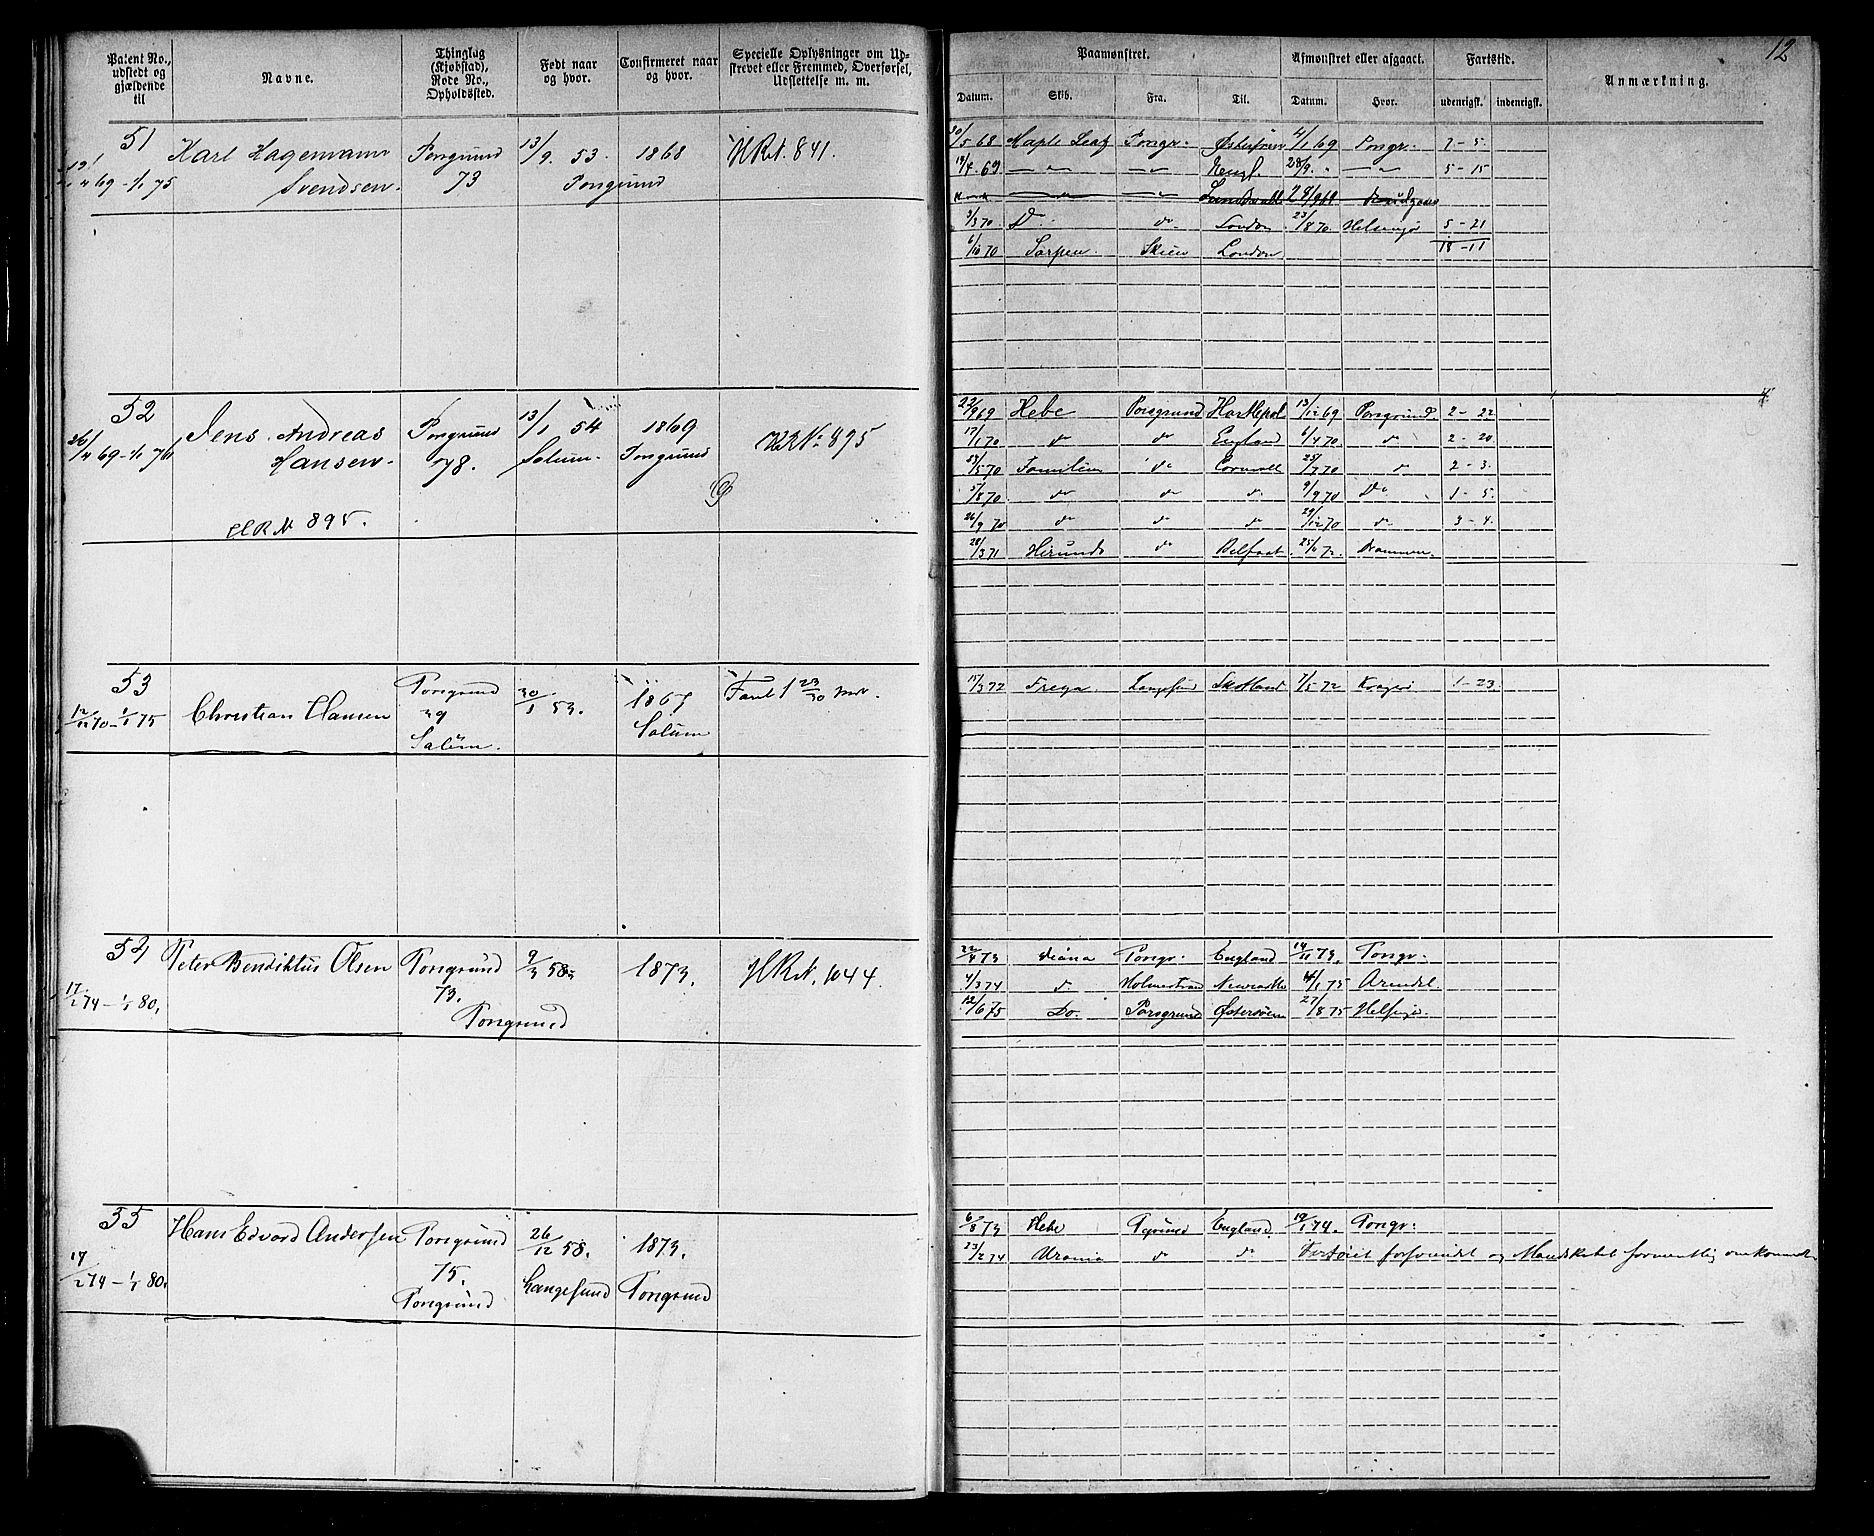 Patent No., udstedt og gjældende til
Navne.
Thinglag (Kjøbstad), Rode No., Opholdssted.
Født naar og hvor.
Confirmeret naar og hvor.
Specielle Oplysninger om Udskrevet eller Fremmed, Overførsel, Udslettelse m. m.
Paamønstret.
Afmønstret eller afgaaet.
Fartstid.
Anmærkning.
12
Datum.
Skib.
Fra.
Til.
Datum.
Hvor.
udenrigsk.
indenrigsk.
51
Karl Hagemann
Svendsen.
Porsgrund
73
13/9 53.
Porsgrund
1868
HRN. 841.
30/5 68 Maple Leaf Porsgr. Østersøen 4/1 69 Porsgr. 7-5
18/4 69 28/9 5-15
3/3 70 Do do London 23/8 70 Helsingør 5-21
6/10 70 Sarpen Skien London 18-11
52
26/4 69 - 1/1 76
Jens Andreas
Hansen.
HRN 895.
Porsgrund
78.
13/1 54
Solum.
1869
Porsgrund
HRNo 895
22/9 69 Hebe Porsgrund Hartlepol 13/12 69 Porsgrund 2-22
17/1 70 do do England 6/4 70 do 2-20
Familien do Cornwall 25/7 70 do 2-3
5/8 70 do do do 9/9 70 Do 1-5
26/9 70 do do do 29/12 70 do 3-4
28/3 71 Hirundo do Belfast Drammen.
53
12/12 70 - 1/1 75
Christian Hansen
Porsgrund
39
Solum.
30/1 53.
1867
Solum
Fart 1 23/30 md.
15/3 72 Freya Langesund Skotland 7/5 72 Kragerø 1-23
54
17/2 74 - 1/1 80.
Peter Bendiktus Olsen
Porsgrund
73.
Porsgrund
9/3 58
1873.
HRN. 1044.
22/4 73 Diana Porsgr. England 14/11 73. Porsgr.
4/3 74 d Holmestrand 1/1 75 Arendal
12/6 75 Do. Porsgrund Østersøen 27/8 75 Helsingør.
55
17/2 74 - 1/1 80.
Hans Edvard Andersen
Porsgrund
75.
Porsgrund
26/12 58.
Langesund
1873.
Porsgrund
6/8 73 Hebe Pgrund England 19/1 74. Porsgr.
23/12 74 Urania d d Fartøiet forsvundet og Mandskabet formentlig omkommet